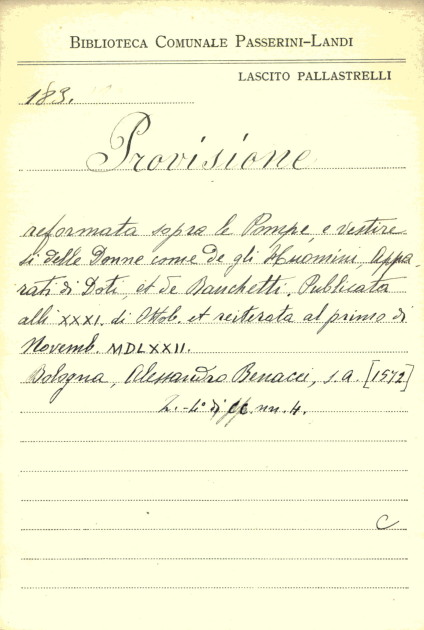 BIBLIOTECA COMUNALE PASSERINI-LANDI
LASCITO PALLASTRELLI
183.
Provisione
reformata sopra le Pompe, e vestire
sì delle Donne come de gli Huomini, Appa-
rati di Doti, et de Banchetti. Publicata
alli XXXI. di Ottob. et reiterata al primo di
Novemb. MDLXXII.
Bologna, Alessandro Benacci, s. a. [1572]
4° di cc. nn. 4.
C